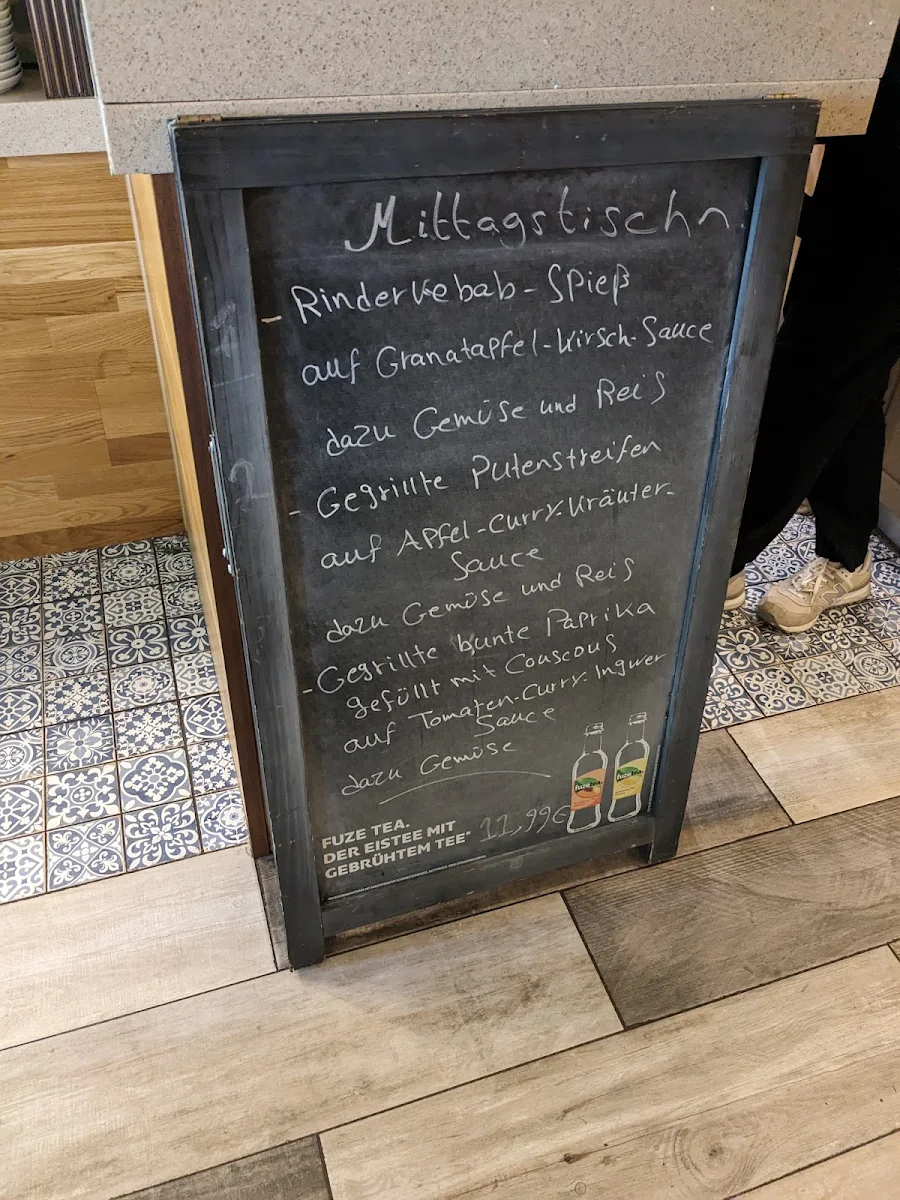 Mittagstischn
- Rinderkebab-Spieß
auf Granatapfel-Kirsch-Sauce
dazu Gemüse und Reis
- Gegrillte Putenstreifen
auf Apfel-Curry-Kräuter-
Sauce
dazu Gemüse und Reis
- Gegrillte bunte Paprika
gefüllt mit Couscous
auf Tomaten-Curry-Ingwer
Sauce
dazu Gemüse
11,99€
FUZE TEA.
DER EISTEE MIT
GEBRÜHTEM TEE*
fuze tea
fuze tea